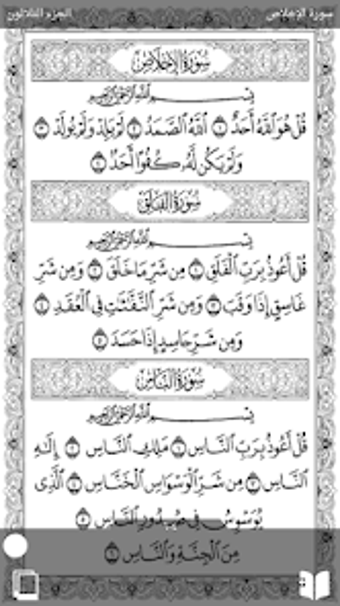 سورة الإخلاص
الجزء الثلاثون
سُورَةُ الإِخْلَاصِ
بِسْمِ ٱللَّهِ ٱلرَّحْمَٰنِ ٱلرَّحِيمِ
قُلْ هُوَ ٱللَّهُ أَحَدٌ ١ ٱللَّهُ ٱلصَّمَدُ ٢ لَمْ يَلِدْ وَلَمْ يُولَدْ ٣
وَلَمْ يَكُن لَّهُۥ كُفُوًا أَحَدٌۢ ٤
سُورَةُ الفَلَقِ
بِسْمِ ٱللَّهِ ٱلرَّحْمَٰنِ ٱلرَّحِيمِ
قُلْ أَعُوذُ بِرَبِّ ٱلْفَلَقِ ١ مِن شَرِّ مَا خَلَقَ ٢ وَمِن شَرِّ
غَاسِقٍ إِذَا وَقَبَ ٣ وَمِن شَرِّ ٱلنَّفَّٰثَٰتِ فِى ٱلْعُقَدِ ٤
وَمِن شَرِّ حَاسِدٍ إِذَا حَسَدَ ٥
سُورَةُ النَّاسِ
بِسْمِ ٱللَّهِ ٱلرَّحْمَٰنِ ٱلرَّحِيمِ
قُلْ أَعُوذُ بِرَبِّ ٱلنَّاسِ ١ مَلِكِ ٱلنَّاسِ ٢ إِلَٰهِ
ٱلنَّاسِ ٣ مِن شَرِّ ٱلْوَسْوَاسِ ٱلْخَنَّاسِ ٤ ٱلَّذِى
يُوَسْوِسُ فِى صُدُورِ ٱلنَّاسِ ٥
مِنَ ٱلْجِنَّةِ وَٱلنَّاسِ ٦